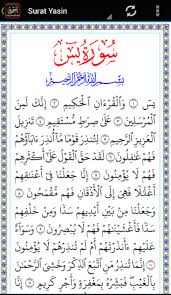 Surat Yasin
سُورَةُ يسٓ
بِسْمِ اللَّهِ الرَّحْمَٰنِ الرَّحِيمِ
يسٓ ۝١ وَالْقُرْءَانِ الْحَكِيمِ ۝٢ إِنَّكَ لَمِنَ
الْمُرْسَلِينَ ۝٣ عَلَىٰ صِرَٰطٍ مُّسْتَقِيمٍ ۝٤ تَنزِيلَ
الْعَزِيزِ الرَّحِيمِ ۝٥ لِتُنذِرَ قَوْمًا مَّا أُنذِرَ ءَابَاؤُهُمْ
فَهُمْ غَٰفِلُونَ ۝٦ لَقَدْ حَقَّ الْقَوْلُ عَلَىٰ أَكْثَرِهِمْ
فَهُمْ لَا يُؤْمِنُونَ ۝٧ إِنَّا جَعَلْنَا فِي أَعْنَٰقِهِمْ
أَغْلَٰلًا فَهِيَ إِلَى الْأَذْقَانِ فَهُم مُّقْمَحُونَ ۝٨
وَجَعَلْنَا مِن بَيْنِ أَيْدِيهِمْ سَدًّا وَمِنْ خَلْفِهِمْ
سَدًّا فَأَغْشَيْنَٰهُمْ فَهُمْ لَا يُبْصِرُونَ ۝٩ وَ
سَوَاءٌ عَلَيْهِمْ ءَأَنذَرْتَهُمْ أَمْ لَمْ تُنذِرْهُمْ لَا يُؤْمِنُونَ
۝١٠ إِنَّمَا تُنذِرُ مَنِ اتَّبَعَ الذِّكْرَ وَخَشِيَ الرَّحْمَٰنَ
بِالْغَيْبِ فَبَشِّرْهُ بِمَغْفِرَةٍ وَأَجْرٍ كَرِيمٍ ۝١١